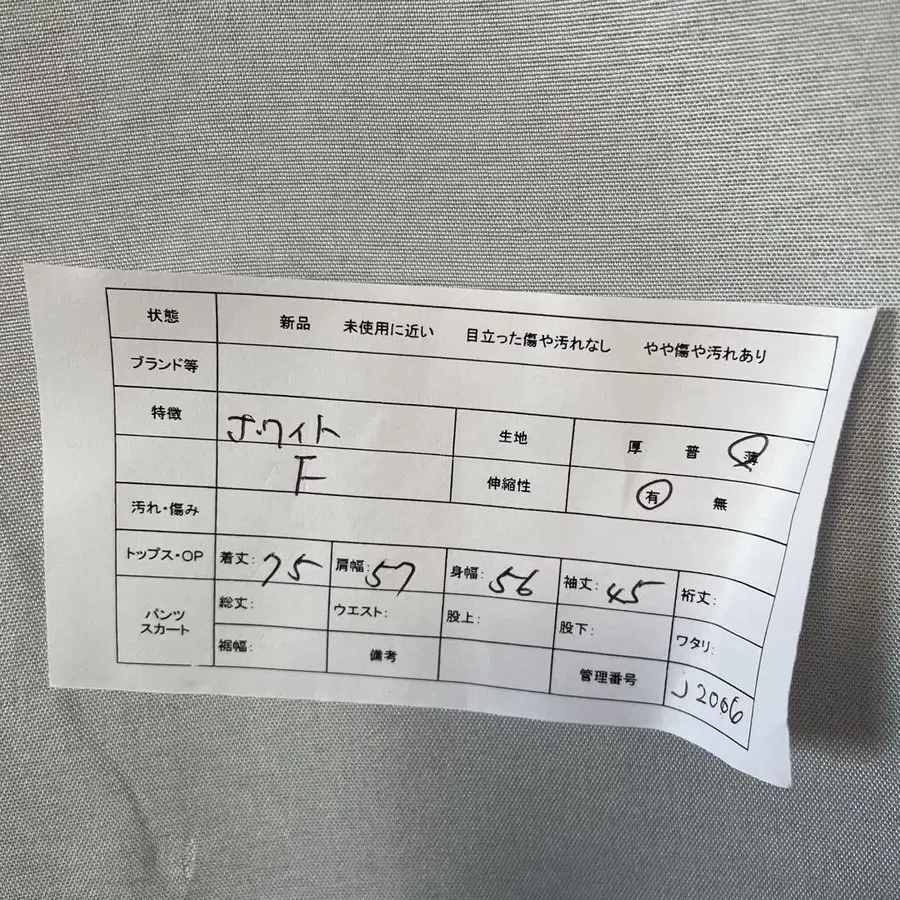 状態 新品 未使用に近い 目立った傷や汚れなし やや傷や汚れあり
ブランド等
特徴 ホワイト 生地 厚 普 薄
F 伸縮性 有 無
汚れ・傷み
トップス・OP 着丈: 75 肩幅: 57 身幅: 56 袖丈: 45 裄丈:
パンツ スカート 総丈: ウエスト: 股上: 股下: ワタリ:
裾幅: 備考 管理番号 J2006